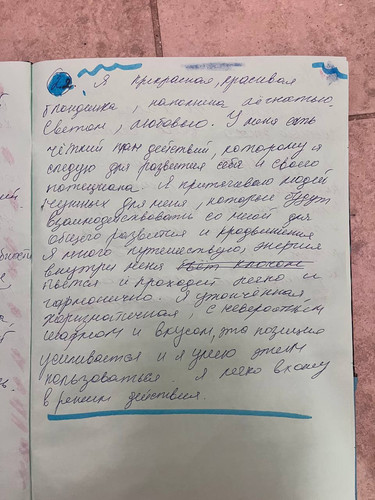 Я прекрасная, красивая
блондинка, наполнена лёгкостью.
Светом, любовью. У меня есть
чёткий план действий, которому я
следую для развития себя и своего
потенциала. Я притягиваю людей
нужных для меня, которые будут
взаимодействовать со мной для
общего развития и продвижения
Я много путешествую, энергия
внутри меня бьёт ключом
льётся и проходит легко и
гармонично. Я утончённая,
харизматичная, с невероятным
шармом и вкусом, это позиция
усиливается и я умею этим
пользоваться. Я легко вхожу
в режим действия.